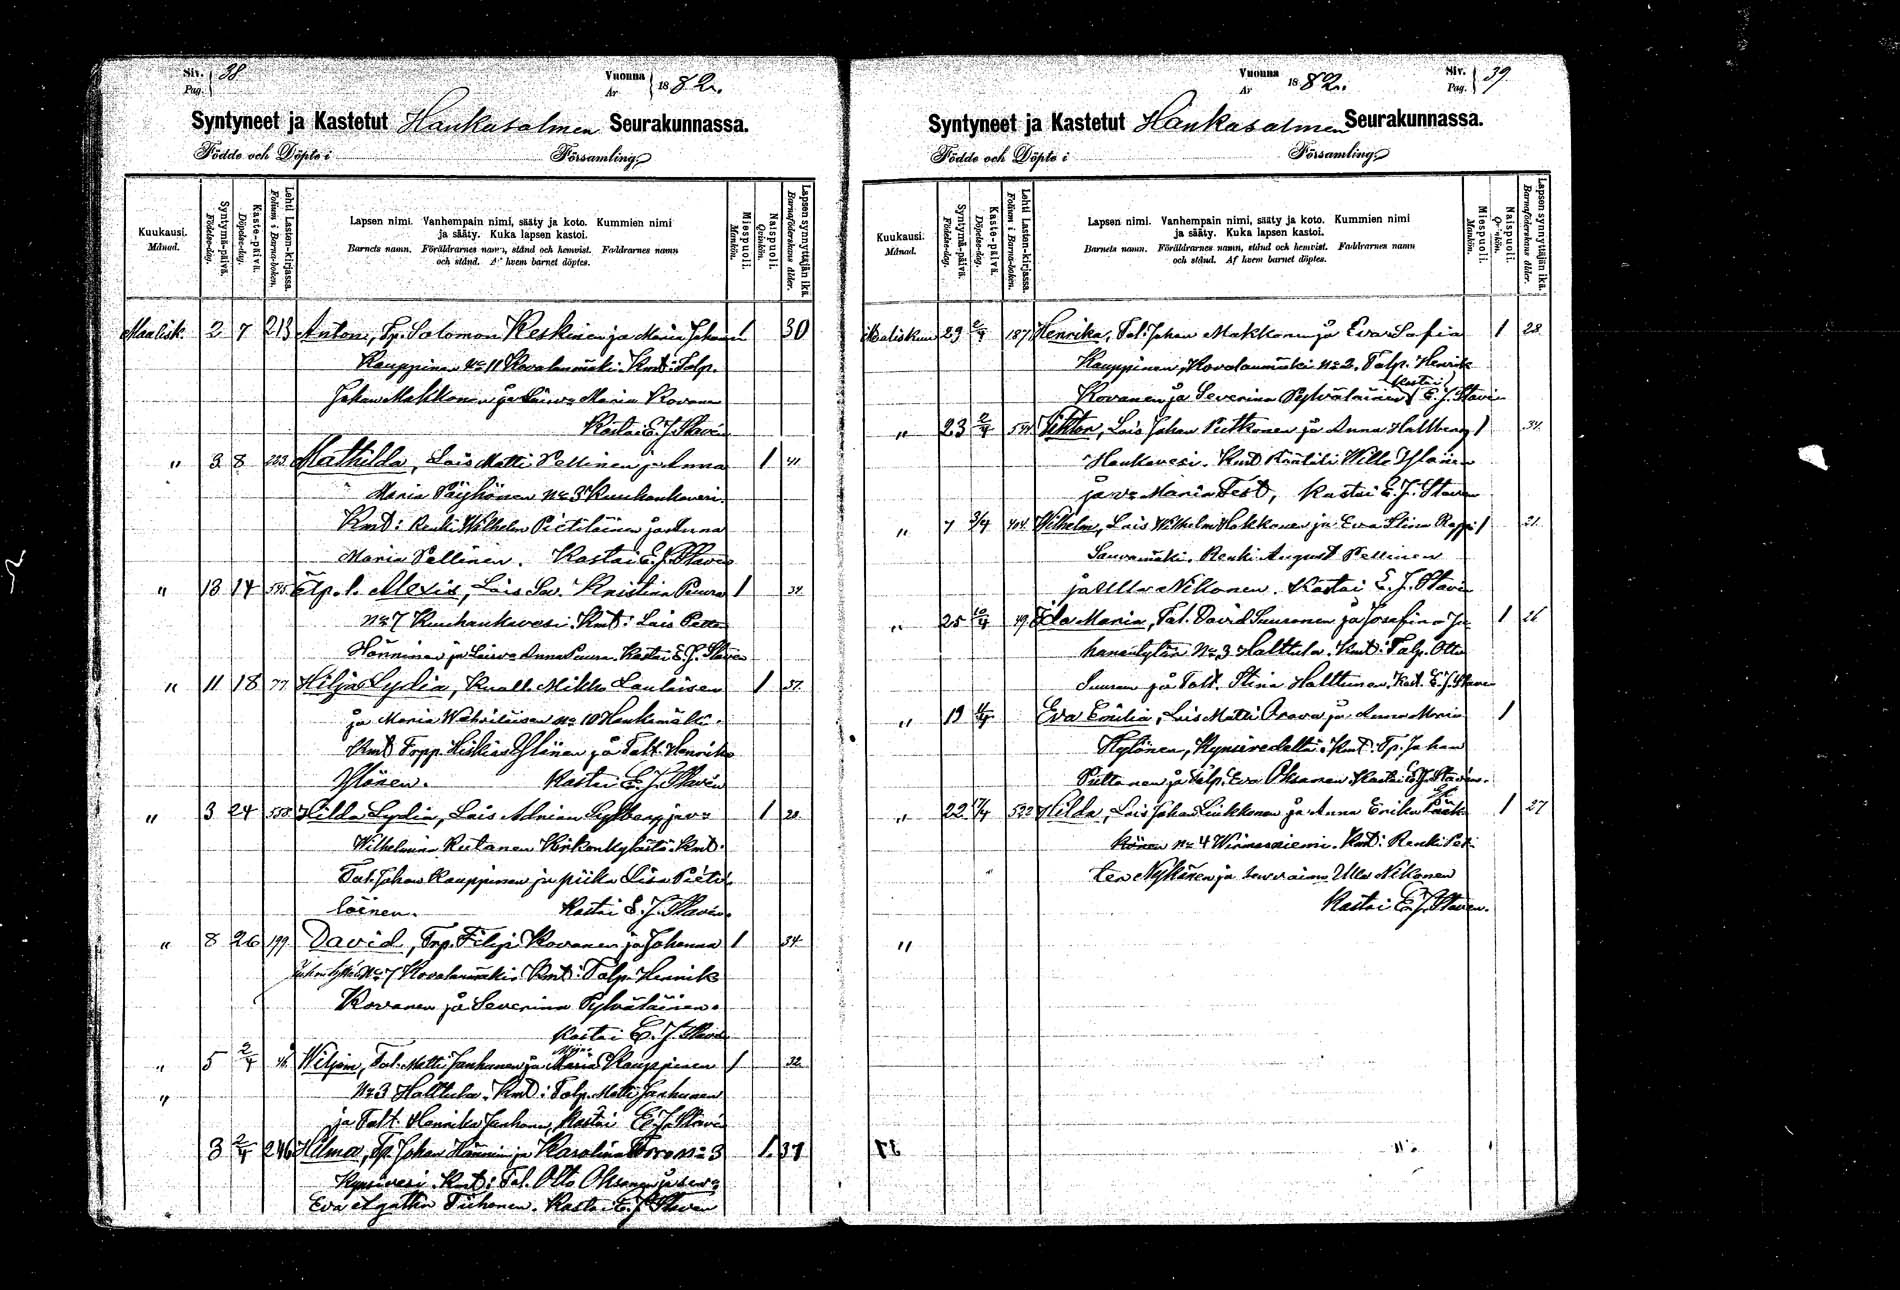 Siv. Pag. 38
Vuonna År 1882.
Syntyneet ja Kastetut Hankasalmen Seurakunnassa.
Födde och Döpte i Församling
Kuukausi. Månad.
Syntymä-päivä. Födelse-dag.
Kaste-päivä. Döpelse-dag.
Lehti Lasten-kirjassa. Folium i Barna-boken.
Lapsen nimi. Vanhempain nimi, sääty ja koto. Kummien nimi
ja sääty. Kuka lapsen kastoi.
Barnets namn. Föräldrarnes namn, stånd och hemvist. Faddrarnes namn
och stånd. Af hvem barnet döptes.
Miespuoli. Mankön.
Naispuoli. Qvinkön.
Lapsen synnyttäjän ikä. Barnaföderskans ålder.
Maalisk. 2 7 213 Anton, Tp. Salomon Keskinen ja Maria Johanna 1 30
Kauppinen No 11 Kovalanmäki. Kmt: Talp.
Johan Makkonen ja Lais. v:o Maria Kovanen
Kastoi E. J. Stavén
" 3 8 223 Mathilda, Lois Matti Pellinen ja Anna 1 41
Maria Päyhönen No 3 Kuuhankavesi.
Kmt: Renki Wilhelm Pietiläinen ja Anna
Maria Pellinen. Kastoi E. J. Stavén
" 13 14 595 Äp. l. Alexis, Lois Kristina Puura 1 34
No 7 Kuuhankavesi. Kmt: Lois Petter
Hänninen ja Anna Puura. Kastoi E. J. Stavén
" 11 18 77 Hilja Lydia, Mikko Laulaisen 1 37
ja Maria No 10 Hankamäki.
Kmt Torp. Hiskias Ylönen ja Talt. Henrika
Ylönen. Kastoi E. J. Stavén
" 3 24 558 Hilda Lydia, Lois Adrian ja v:o 1 28
Wilhelmina Rutanen Kirkonkylästä. Kmt.
Tal. Johan Kauppinen ja piika Lisa Pieti-
läinen. Kastoi E. J. Stavén.
" 8 26 199 David, Trp. Filip Kovanen ja Johanna 1 34
No 7 Kovalanmäki. Kmt: Talp. Henrik
Kovanen ja Severina Pylväläinen.
Kastoi E. J. Stavén
" 5 2/4 46 Wiljam, Tal. Matti Janhunen ja Maria Kauppinen 1 32
" No 3 Halttula. Kmt: Talp. Matti Janhunen
ja Talt. Henrika Janhunen, Kastoi E. J. Stavén
3 2/4 246 Hilma, Tp. Johan Hänninen ja Karolina Toro No 3 1. 37
Kynsivesi. Kmt: Tal. Otto Oksanen ja
Eva Agatha Tiihonen. Kastoi E. J. Stavén
Vuonna År 1882.
Siv. Pag. 39
Syntyneet ja Kastetut Hankasalmen Seurakunnassa.
Födde och Döpte i Församling
Kuukausi. Månad.
Syntymä-päivä. Födelse-dag.
Kaste-päivä. Döpelse-dag.
Lehti Lasten-kirjassa. Folium i Barna-boken.
Lapsen nimi. Vanhempain nimi, sääty ja koto. Kummien nimi
ja sääty. Kuka lapsen kastoi.
Barnets namn. Föräldrarnes namn, stånd och hemvist. Faddrarnes namn
och stånd. Af hvem barnet döptes.
Miespuoli. Mankön.
Naispuoli. Qvinkön.
Lapsen synnyttäjän ikä. Barnaföderskans ålder.
Maaliskuu 29 2/4 187 Henrika, Tal. Johan Makkonen ja Eva Sofia 1 28
Kauppinen, Kovalanmäki No 2. Talp. Henrik
Kovanen ja Severina Pylväläinen Kastoi E. J. Stavén
" 23 2/4 544 Viktor, Lois Johan Putkonen ja Anna Hallberg 1 34
Hankavesi. Kmt Räätäli Wille Ylönen
ja v:o Maria Fest, Kastoi E. J. Stavén
" 7 3/4 404 Wilhelm, Lois Wilhelm Hakkonen ja Eva Stina 1 21
Sauvamäki. Renki August Pellinen
ja Ulla Nikonen. Kastoi E. J. Stavén
" 25 10/4 49 Ida Maria, Tal. David Suuronen ja Josefina Jo- 1 26
hanentytär No 3 Halttula. Kmt: Talp. Otto
Suuronen ja Talt. Stina Halttunen. Kast. E. J. Stavén
" 19 11/4 Eva Emilia, Lois Matti Orava ja Anna Maria 1
Kylönen, Kynsivedeltä. Kmt: Tp. Johan
Puttonen ja Talp. Eva Oksanen. Kastoi E. J. Stavén.
" 22 17/4 522 Hilda, Lois Johan Liukkonen ja Anna Erika 1 27
No 4 Wirmasniemi. Kmt: Renki Pet-
ter Nykänen ja Ulla Nikonen
Kastoi E. J. Stavén.
"